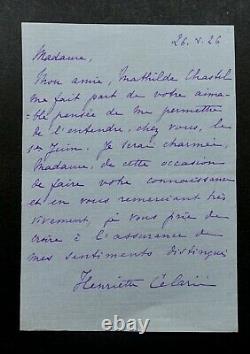 26. V. 26
Madame,
Mon amie, Mathilde Chastel
me fait part de votre aima-
ble pensée de me permettre
de l'entendre, chez vous, le
Juin. Je serai charmée,
Madame, de cette occasion
de faire votre connaissance
et en vous remerciant très
vivement, je vous prie de
croire à l'assurance de
mes sentiments distingués
Henriette Célarié
worthpoint